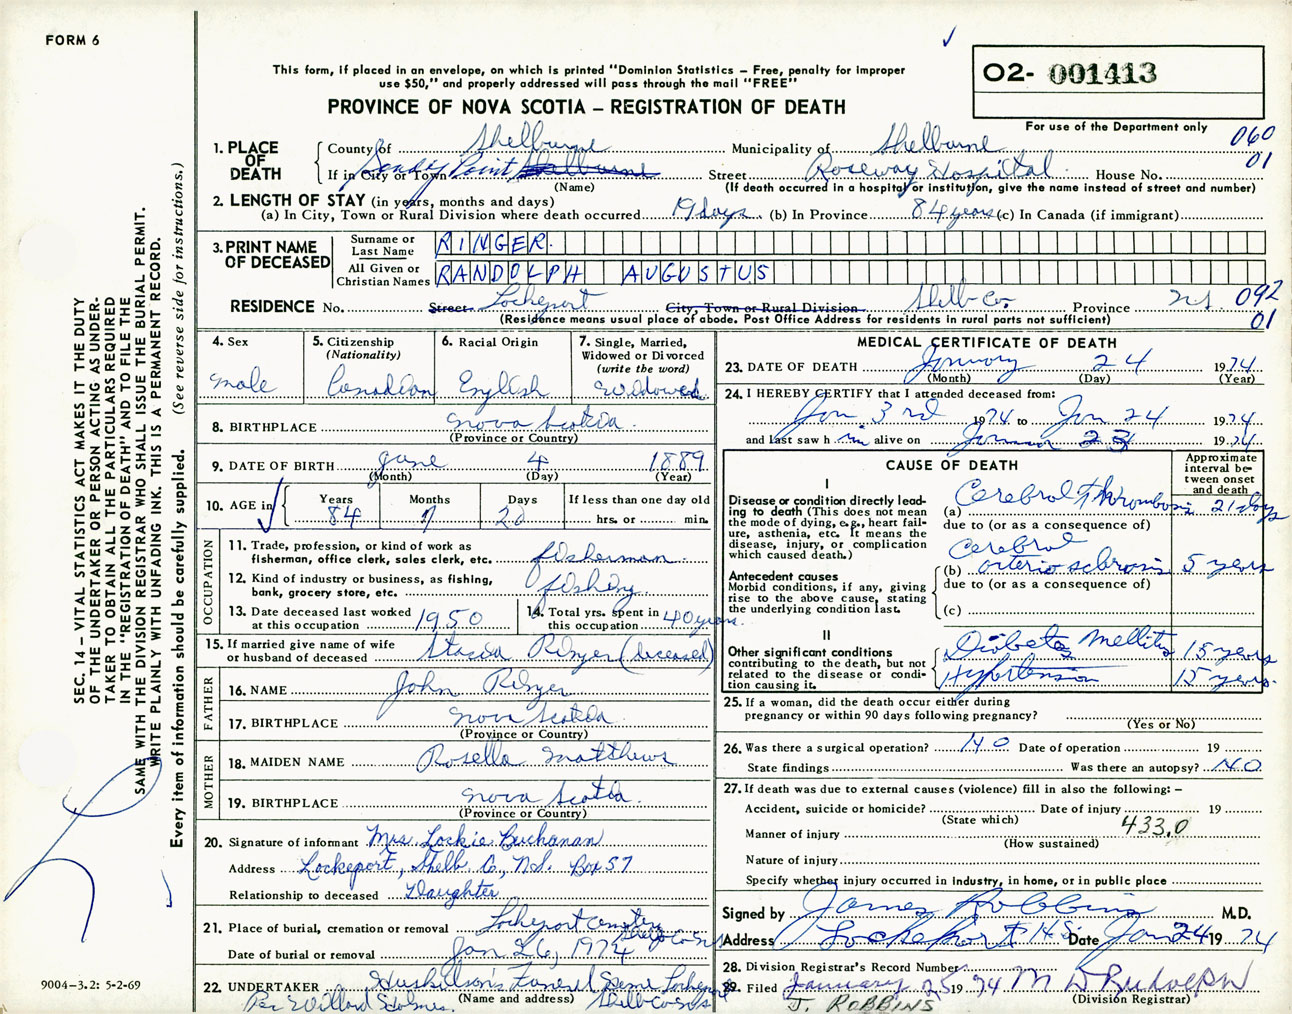 FORM 6
This form, if placed in an envelope, on which is printed "Dominion Statistics – Free, penalty for improper
use $50," and properly addressed will pass through the mail "FREE"
PROVINCE OF NOVA SCOTIA – REGISTRATION OF DEATH
O2- 001413
For use of the Department only
060
01
1. PLACE OF DEATH
County of Shelburne Municipality of Shelburne
If in City or Town Sandy Point Shelburne Street Roseway Hospital House No.
(Name) (If death occurred in a hospital or institution, give the name instead of street and number)
2. LENGTH OF STAY (in years, months and days)
(a) In City, Town or Rural Division where death occurred 19 days (b) In Province 84 years (c) In Canada (if immigrant)
3. PRINT NAME OF DECEASED
Surname or Last Name RINGER
All Given or Christian Names RANDOLPH AUGUSTUS
RESIDENCE No. Street Lockeport City, Town or Rural Division Shelb Co. Province N.S. 092
(Residence means usual place of abode. Post Office Address for residents in rural parts not sufficient) 01
4. Sex
Male
5. Citizenship
(Nationality)
Canadian
6. Racial Origin
English
7. Single, Married,
Widowed or Divorced
(write the word)
Widowed
8. BIRTHPLACE Nova Scotia
(Province or Country)
9. DATE OF BIRTH June 4 1889
(Month) (Day) (Year)
10. AGE in
Years Months Days If less than one day old
84 7 20 hrs. or min.
OCCUPATION
11. Trade, profession, or kind of work as
fisherman, office clerk, sales clerk, etc. fisherman
12. Kind of industry or business, as fishing,
bank, grocery store, etc. fishing
13. Date deceased last worked
at this occupation 1950
14. Total yrs. spent in
this occupation 40 years.
15. If married give name of wife
or husband of deceased Stacia Ringer (deceased)
FATHER
16. NAME John Ringer
17. BIRTHPLACE Nova Scotia
(Province or Country)
MOTHER
18. MAIDEN NAME Rosella Matthews
19. BIRTHPLACE Nova Scotia.
(Province or Country)
20. Signature of informant Mrs. Lockie Buchanan
Address Lockeport, Shelb. Co., N.S. Box 57
Relationship to deceased Daughter
21. Place of burial, cremation or removal Lockeport Cemetery
Shelb Co NS
Date of burial or removal Jan 26, 1974
22. UNDERTAKER Huskilson's Funeral Home Lockeport
(Name and address) Shelb Co NS
Per Willard Holmes.
MEDICAL CERTIFICATE OF DEATH
23. DATE OF DEATH January 24 1974
(Month) (Day) (Year)
24. I HEREBY CERTIFY that I attended deceased from:
Jan 3rd 1974 to Jan 24 1974
and last saw h im alive on 23 1974
CAUSE OF DEATH
Approximate
interval be-
tween onset
and death
I
Disease or condition directly lead-
ing to death (This does not mean
the mode of dying, e.g., heart fail-
ure, asthenia, etc. It means the
disease, injury, or complication
which caused death.)
(a) Cerebral Thrombosis 21 days
due to (or as a consequence of)
Antecedent causes
Morbid conditions, if any, giving
rise to the above cause, stating
the underlying condition last.
Cerebral
(b) arteriosclerosis 5 years
due to (or as a consequence of)
(c)
II
Other significant conditions
contributing to the death, but not
related to the disease or condi-
tion causing it.
Diabetes Mellitus 15 years
Hypertension 15 years.
25. If a woman, did the death occur either during
pregnancy or within 90 days following pregnancy?
(Yes or No)
26. Was there a surgical operation? NO Date of operation 19
State findings Was there an autopsy? NO
27. If death was due to external causes (violence) fill in also the following: –
Accident, suicide or homicide? Date of injury 19
(State which) 433.0
Manner of injury
(How sustained)
Nature of injury
Specify whether injury occurred in industry, in home, or in public place
Signed by James Robbins M.D.
Address Lockeport N.S. Date Jan 24 19 74
28. Division Registrar's Record Number
29. Filed January 25 1974 M D Rudolph
(Division Registrar)
J. ROBBINS
SEC. 14 – VITAL STATISTICS ACT MAKES IT THE DUTY
OF THE UNDERTAKER OR PERSON ACTING AS UNDER-
TAKER TO OBTAIN ALL THE PARTICULARS REQUIRED
IN THE "REGISTRATION OF DEATH" AND TO FILE THE
SAME WITH THE DIVISION REGISTRAR WHO SHALL ISSUE THE BURIAL PERMIT.
WRITE PLAINLY WITH UNFADING INK. THIS IS A PERMANENT RECORD.
Every item of information should be carefully supplied. (See reverse side for instructions.)
9004-3.2: 5-2-69